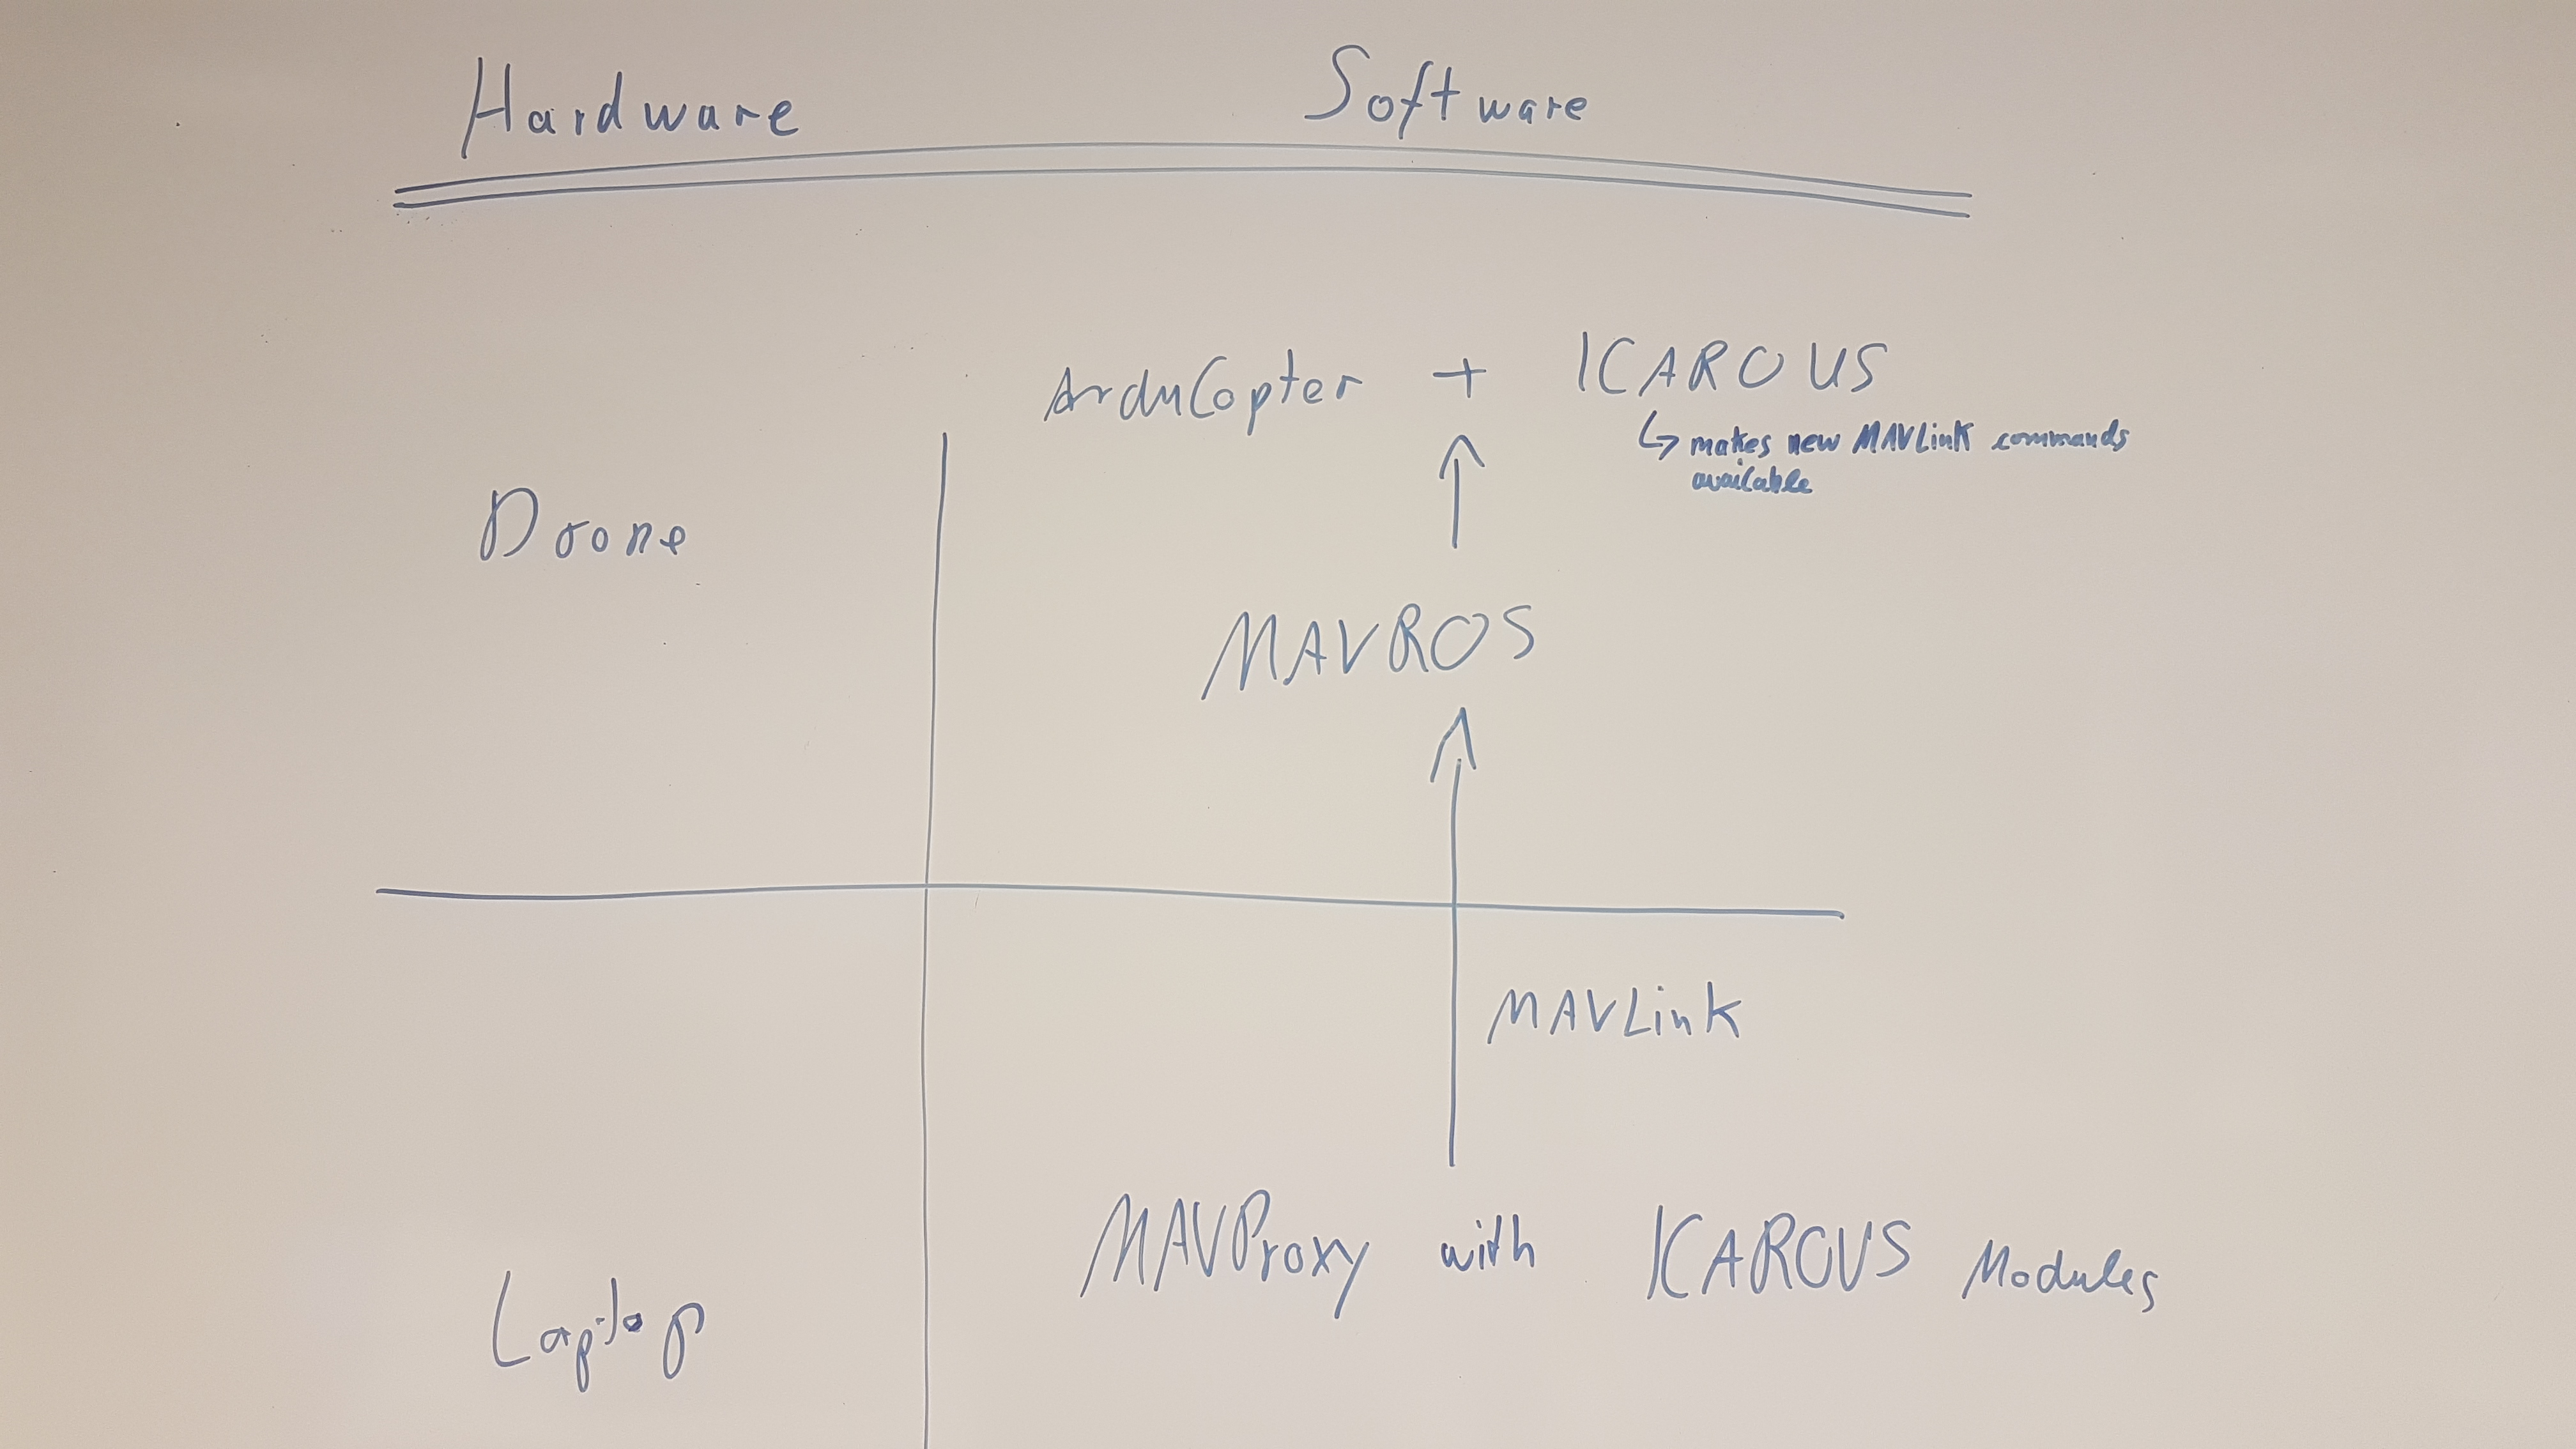 Hardware Software
ArduCopter + ICAROUS
↳ makes new MAVLink commands
available
Drone
MAVROS
MAVLink
MAVProxy with ICAROUS Modules
Laptop